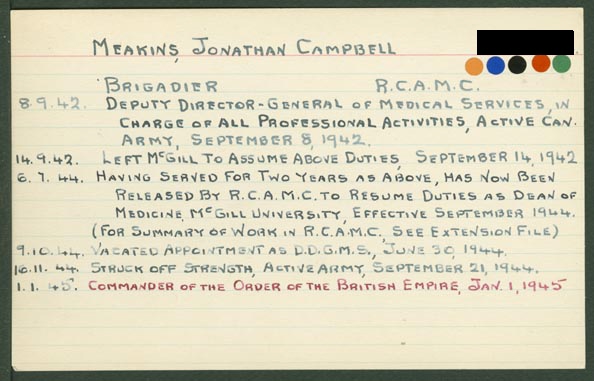 MEAKINS, JONATHAN CAMPBELL
BRIGADIER R.C.A.M.C.
8.9.42. DEPUTY DIRECTOR-GENERAL OF MEDICAL SERVICES, IN
CHARGE OF ALL PROFESSIONAL ACTIVITIES, ACTIVE CAN.
ARMY, SEPTEMBER 8, 1942.
14.9.42. LEFT MCGILL TO ASSUME ABOVE DUTIES, SEPTEMBER 14, 1942
6.7.44. HAVING SERVED FOR TWO YEARS AS ABOVE, HAS NOW BEEN
RELEASED BY R.C.A.M.C. TO RESUME DUTIES AS DEAN OF
MEDICINE, MCGILL UNIVERSITY, EFFECTIVE SEPTEMBER 1944.
(FOR SUMMARY OF WORK IN R.C.A.M.C., SEE EXTENSION FILE)
9.10.44. VACATED APPOINTMENT AS D.D.G.M.S., JUNE 30, 1944.
16.11.44. STRUCK OFF STRENGTH, ACTIVE ARMY, SEPTEMBER 21, 1944.
1.1.45. COMMANDER OF THE ORDER OF THE BRITISH EMPIRE, JAN. 1, 1945